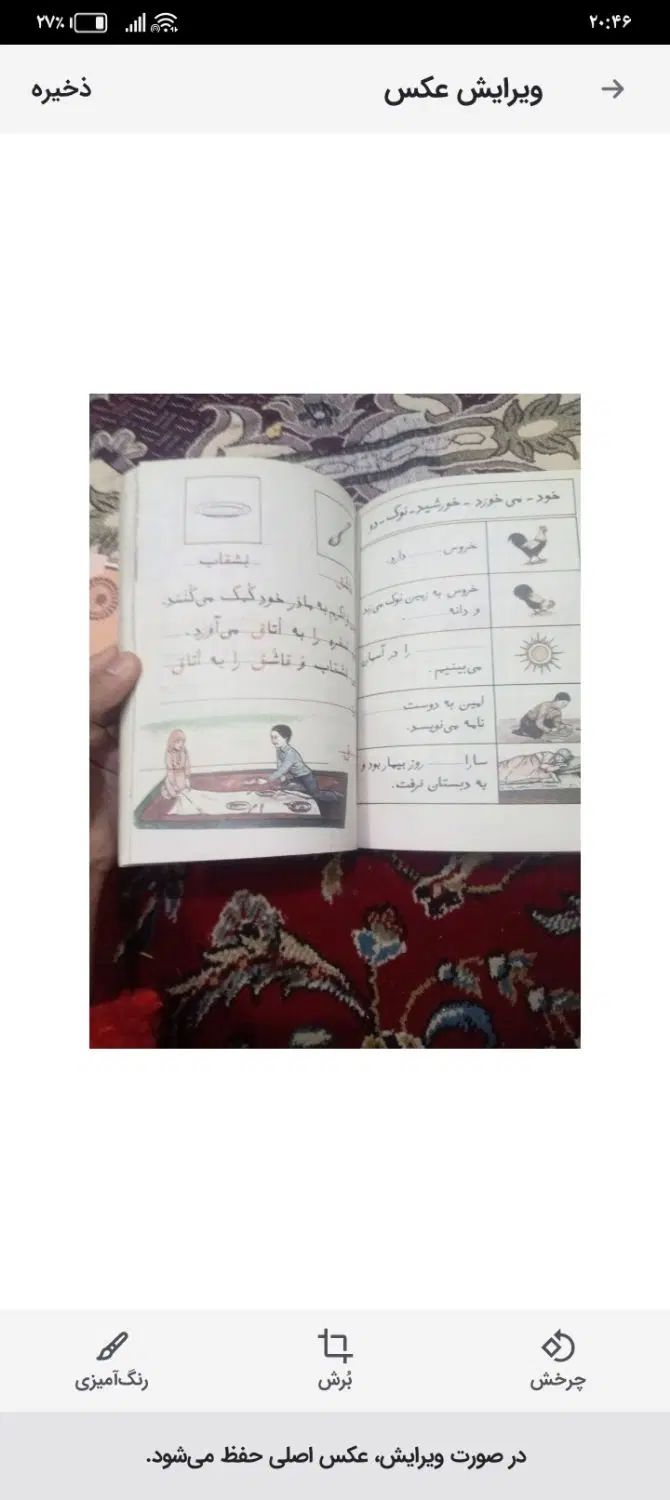 ۲۷٪
۲۰:۴۶
ویرایش عکس
ذخیره
خود - می خورد - خورشید - نوک - دو
خروس ........ دارد.
خروس به زمین نوک می‌زند
و دانه ........ .
........ را در آسمان
می‌بینیم.
امین به دوست ........
نامه می‌نویسد.
سارا ........ روز بیمار بود و
به دبستان نرفت.
بشقاب
اکرم به مادر خود کمک می‌کنند.
سفره را به اتاق می‌آورد.
بشقاب و قاشق را به اتاق
چرخش
بُرش
رنگ‌آمیزی
در صورت ویرایش، عکس اصلی حفظ می‌شود.